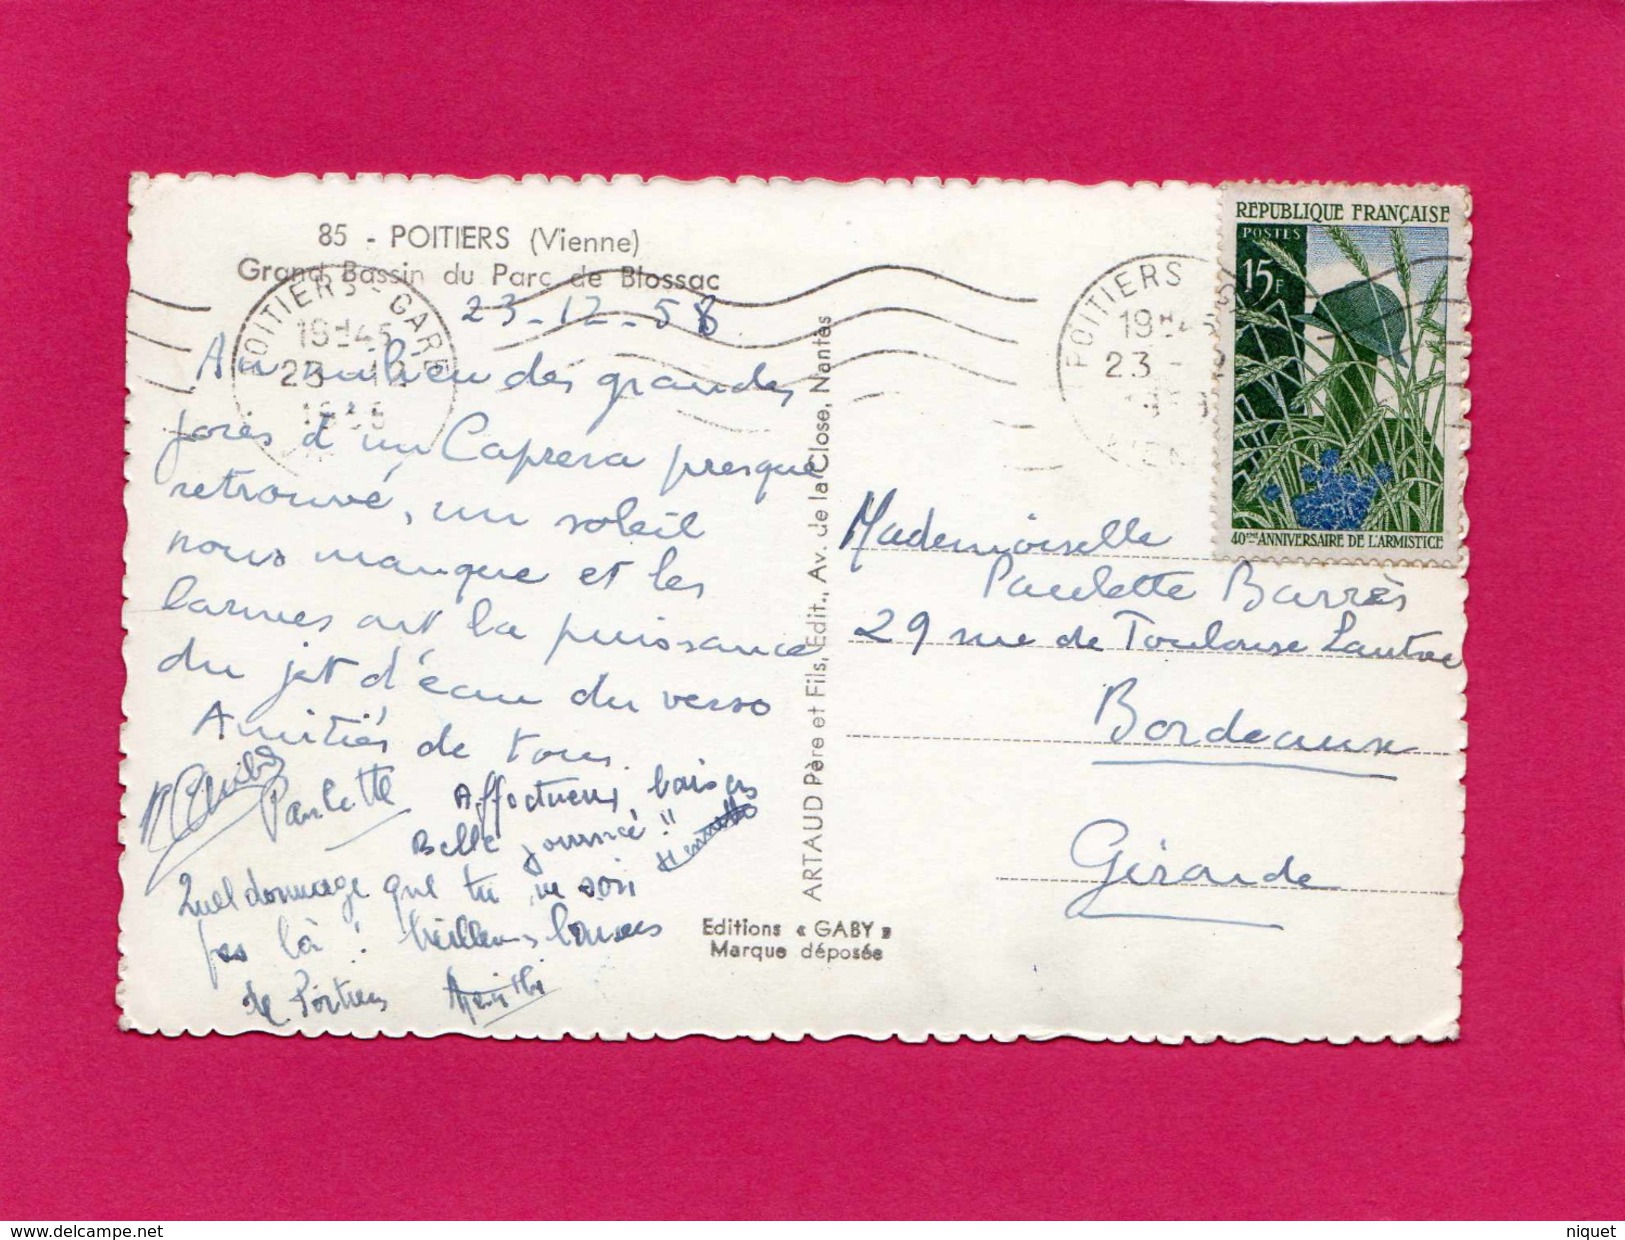 85 - POITIERS (Vienne)
Grand Bassin du Parc de Blossac
23-12-58
Au milieu des grandes
joies d'un Caprera presque
retrouvé, un soleil
nous manque et les
larmes ont la puissance
du jet d'eau du verso
Amitiés de tous.
Paulette
Affectueux baisers
Belle journée !!
Quel dommage que tu ne sois
pas là ! Meilleurs baisers
de Poitiers
ARTAUD Père et Fils, Edit., Av. de la Close, Nantes
Editions « GABY »
Marque déposée
POITIERS - GARE
19H45
23 - 12
POITIERS
19H45
23 -
REPUBLIQUE FRANÇAISE
POSTES
15F
40EME ANNIVERSAIRE DE L'ARMISTICE
Mademoiselle
Paulette Barrès
29 rue de Toulouse Lautrec
Bordeaux
Gironde
delcampe.net
niquet